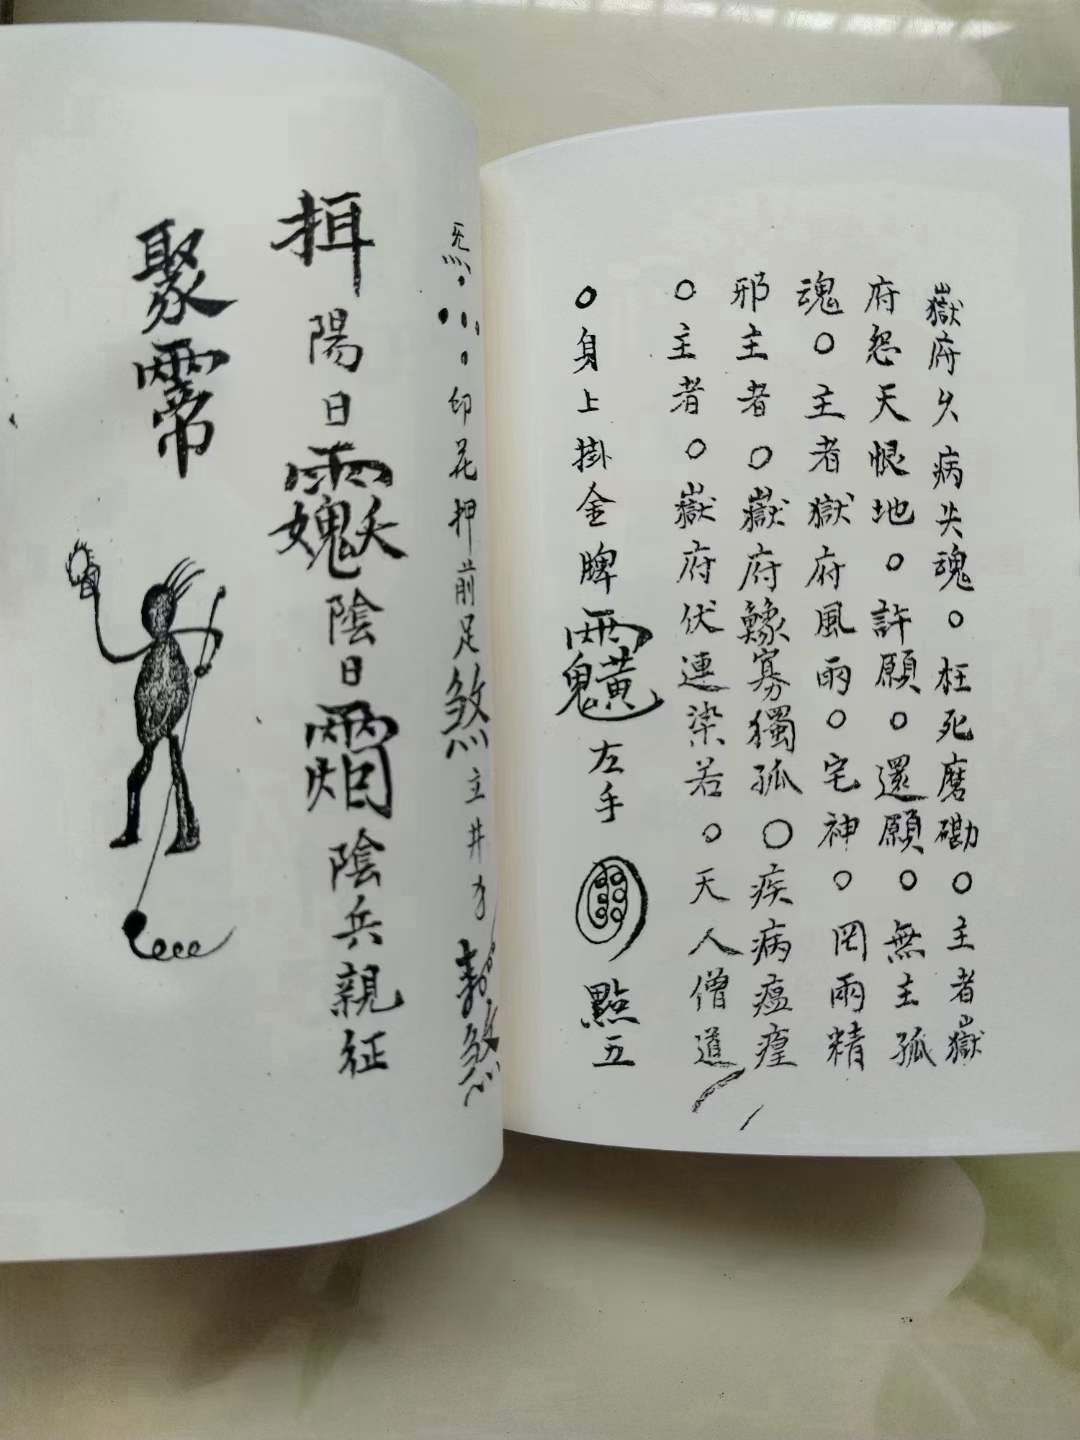 嶽府久病失魂○枉死磨勘○主者嶽
府怨天恨地○許願○還願○無主孤
魂○主者獄府風雨○宅神○罔兩精
邪主者○嶽府鰥寡獨孤○疾病瘟瘴
○主者○嶽府伏連染若○天人僧道
○身上掛金牌 左手 點五
印花押前足煞主井
揖陽日 陰日 陰兵親征
聚